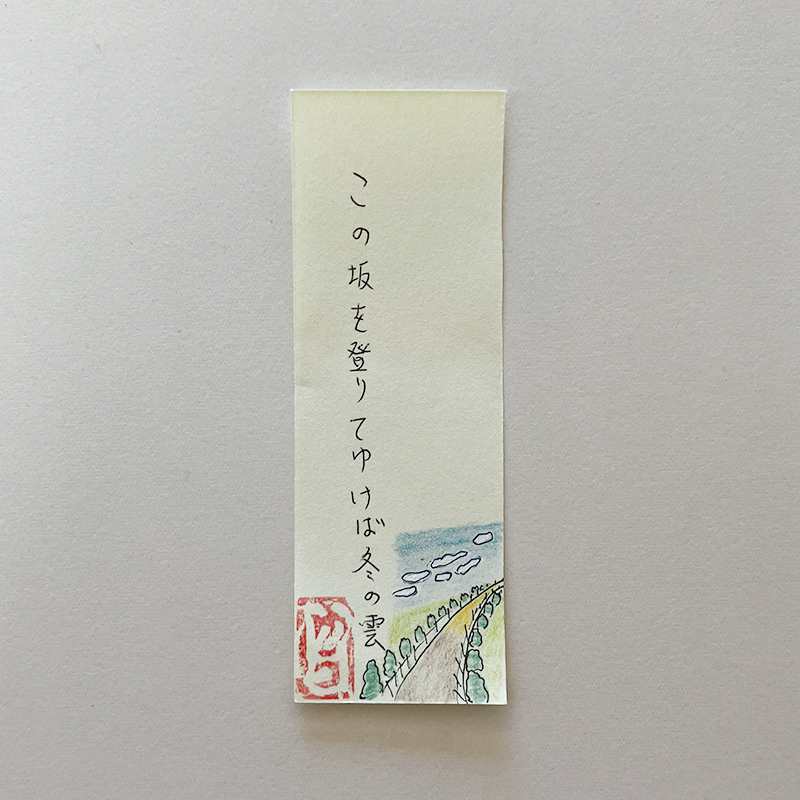 この坂を登りてゆけば冬の雲